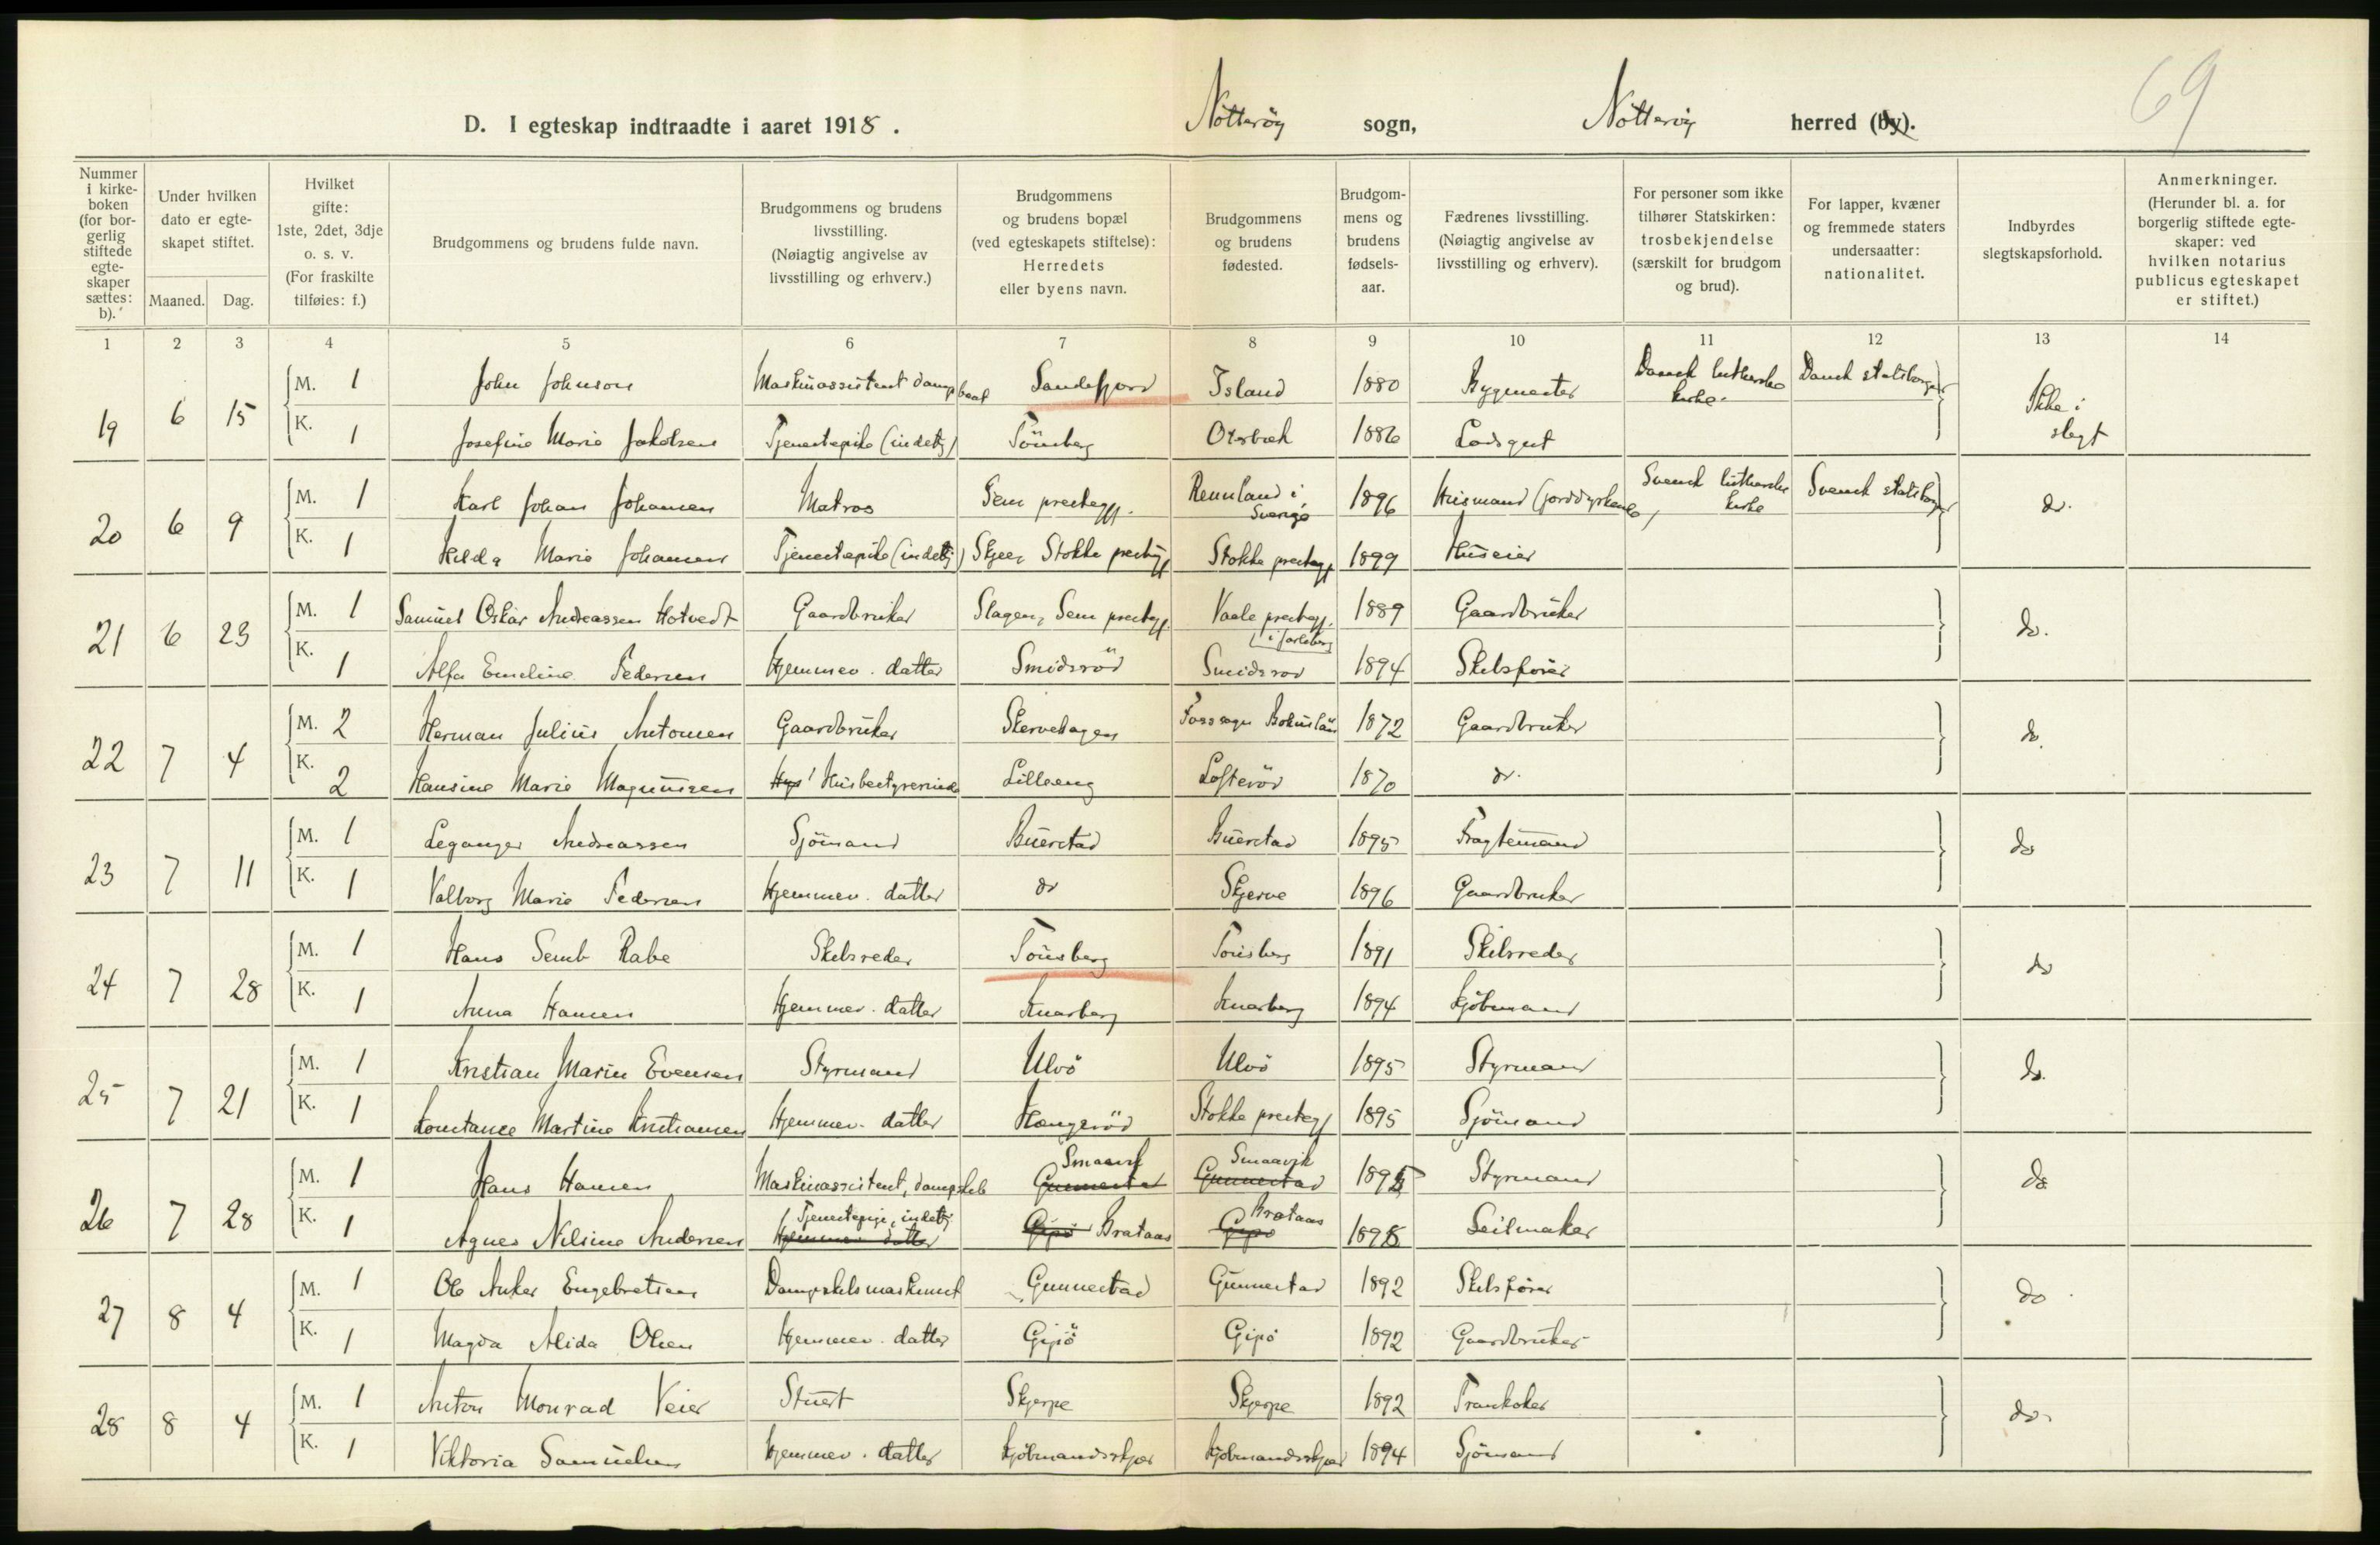 69
D. I egteskap indtraadte i aaret 1918. Nötteröy sogn, Nötteröy herred (by).
Nummer i kirkeboken (for borgerlig stiftede egteskaper sættes: b).
Under hvilken dato er egteskapet stiftet.
Maaned. Dag.
Hvilket gifte: 1ste, 2det, 3dje o. s. v. (For fraskilte tilføies: f.)
Brudgommens og brudens fulde navn.
Brudgommens og brudens livsstilling. (Nøiagtig angivelse av livsstilling og erhverv.)
Brudgommens og brudens bopæl (ved egteskapets stiftelse): Herredets eller byens navn.
Brudgommens og brudens fødested.
Brudgommens og brudens fødselsaar.
Fædrenes livsstilling. (Nøiagtig angivelse av livsstilling og erhverv).
For personer som ikke tilhører Statskirken: trosbekjendelse (særskilt for brudgom og brud).
For lapper, kvæner og fremmede staters undersaatter: nationalitet.
Indbyrdes slegtskapsforhold.
Anmerkninger. (Herunder bl. a. for borgerlig stiftede egteskaper: ved hvilken notarius publicus egteskapet er stiftet.)
1 2 3 4 5 6 7 8 9 10 11 12 13 14
19 6 15 M. 1 John Johnson Maskinassistent dampbaat Sandefjord Island 1880 Bygmester Dansk lutherske kirke. Dansk statsborger Ikke i slegt
K. 1 Josefine Marie Jakobsen Tjenestepike (indetj) Tönsberg Orsbæk 1886 Lodsgut
20 6 9 M. 1 Karl Johan Johansen Matros Sem prestegj. Rennland i Sverige 1896 Husmand (jorddyrkende) Svensk lutherske kirke Svensk statsborger do.
K. 1 Hilda Marie Johansen Tjenestepike (indetj) Skjee, Stokke prestegj Stokke prestegj 1899 Huseier
21 6 23 M. 1 Samuel Oskar Andreassen Hotvedt Gaardbruker Slagen, Sem prestegj. Vaale prestegj. i Jarlsberg 1889 Gaardbruker do.
K. 1 Alfa Emeline Pedersen Hjemmev. datter Smidsröd Smidsröd 1894 Skibsförer
22 7 4 M. 2 Herman Julius Antonsen Gaardbruker Skervehagen Foss sogn Bohuslän 1872 Gaardbruker do.
K. 2 Hansine Marie Magnussen Hus Husbestyrerinde Lilleeng Lofteröd 1870 do.
23 7 11 M. 1 Leganger Andreassen Sjömand Buerstad Buerstad 1895 Fragtemand do
K. 1 Valborg Marie Pedersen Hjemmev. datter do Skjerve 1896 Gaardbruker
24 7 28 M. 1 Hans Semb Rabe Skibsreder Tönsberg Tönsberg 1891 Skibsreder do
K. 1 Anna Hansen Hjemmev. datter Knarberg Knarberg 1894 Kjöbmand
25 7 21 M. 1 Kristian Marin Evensen Styrmand Ulvö Ulvö 1895 Styrmand do.
K. 1 Konstance Martine Kristiansen Hjemmev. datter Hængeröd Stokke prestegj 1895 Sjömand
26 7 28 M. 1 Hans Hansen Maskinassistent, dampskib Gunnestad Smaavik Gunnestad Smaavik 1895 Styrmand do
K. 1 Agnes Nilsine Andersen Hjemmev. datter Tjenestepige, indetj Gipö Brataas Gipö Brataas 1898 Seilmaker
27 8 4 M. 1 Ole Anker Engebretsen Dampskibsmaskinist Gunnestad Gunnestad 1892 Skibsförer do
K. 1 Magda Alida Olsen Hjemmev. datter Gipö Gipö 1892 Gaardbruker
28 8 4 M. 1 Anton Monrad Veier Stuert Skjerpe Skjerpe 1892 Trankoker do.
K. 1 Viktoria Samuelsen Hjemmev. datter Kjöbmandsskjær Kjöbmandsskjær 1894 Sjömand